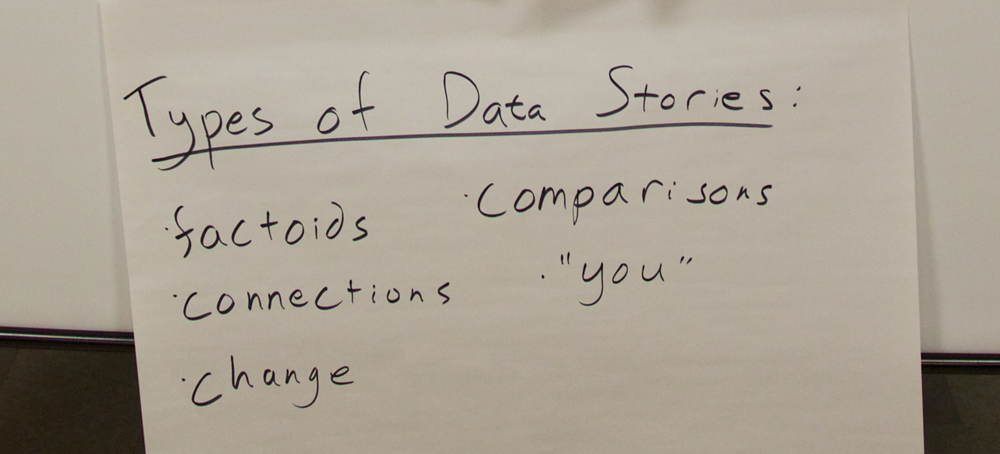 Types of Data Stories:
·factoids
·connections
·change
·comparisons
·"you"